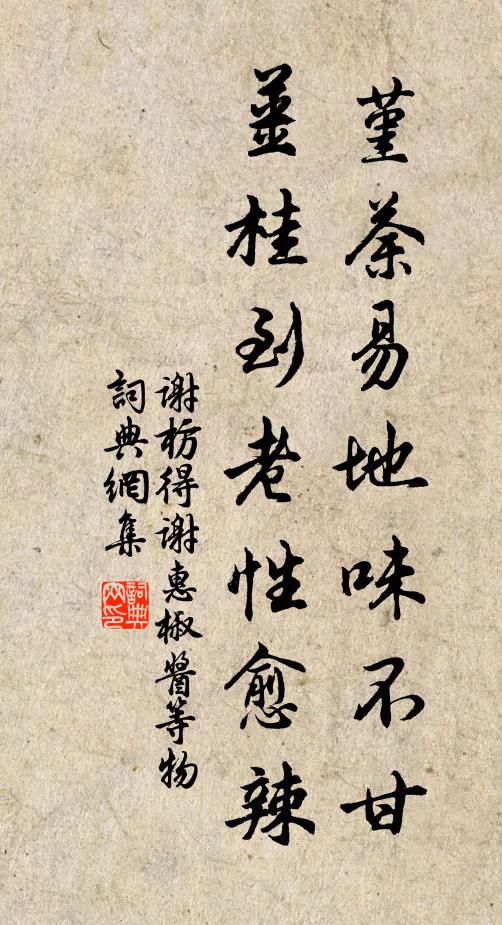 堇荼易地味不甘
薑桂到老性愈辣
謝枋得謝惠椒醬等物
詞典網集
詞典網印